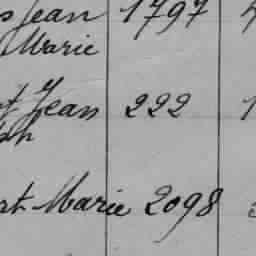 Jean 1797
Marie
Jean 222
ph
rt Marie 2098